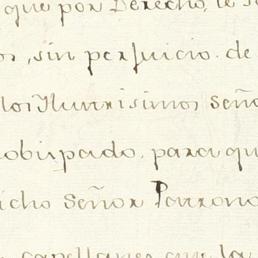 que por Derecho, le
sin perjuicio. de
los Ylustrisimos Seño
obispado, para qu
icho Señor Patrono
capellanes que la